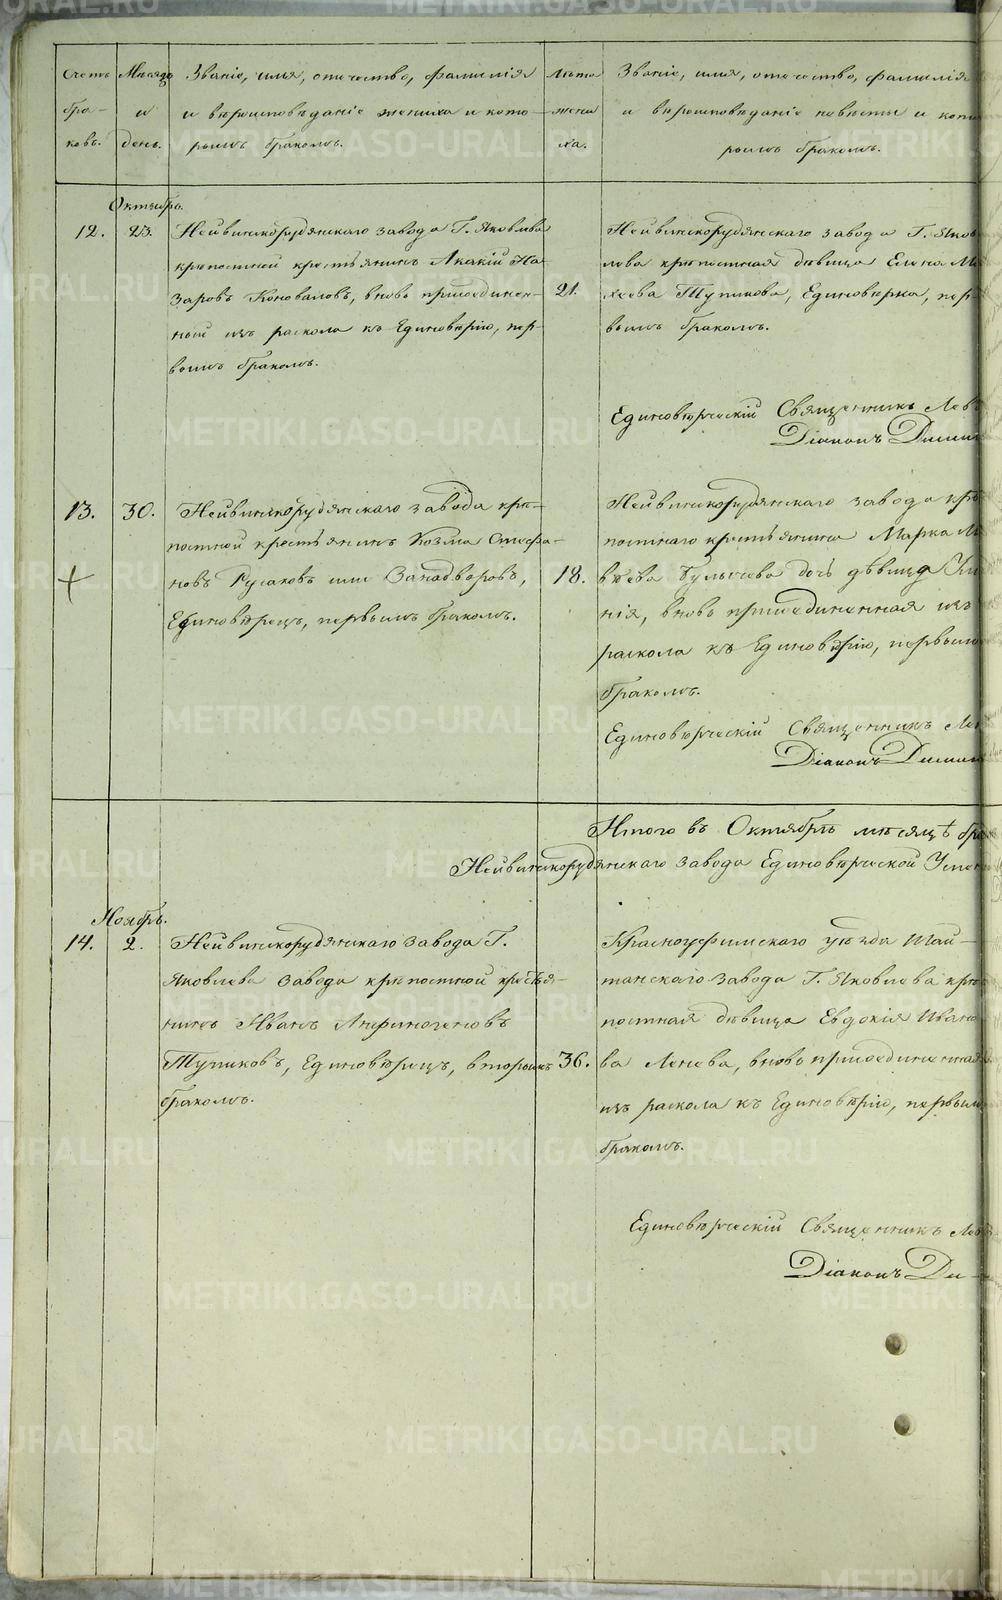 Счетъ браковъ.
Мѣсяцъ и день.
Званіе, имя, отчество, фамилія
и вѣроисповѣданіе жениха и кото-
рымъ бракомъ.
Лѣта жениха.
Званіе, имя, отчество, фамилія
и вѣроисповѣданіе невѣсты и кото
рымъ бракомъ.
Октябрь.
12. 23.
Нейвинскорудянскаго завода Г. Яковлева
крѣпостной крестьянинъ Акакій На-
заровъ Коноваловъ, вновь присоединен-
ный изъ раскола къ Единовѣрію, пер-
вымъ бракомъ.
21.
Нейвинскорудянскаго завода Г. Яков
лева крѣпостная дѣвица Елена Ма
кеева Тупикова, Единовѣрка, пер
вымъ бракомъ.
Единовѣрческій Священникъ Лев
Діаконъ Дими
13. 30.
Нейвинскорудянскаго завода крѣ-
постной крестьянинъ Козма Стефа-
новъ Русаковъ или Западворовъ,
Единовѣрецъ, первымъ бракомъ.
18.
Нейвинскорудянскаго завода крѣ
постнаго крестьянина Марка М
вѣева Булычева дочь дѣвица
нія, вновь присоединенная изъ
раскола къ Единовѣрію, первымъ
бракомъ.
Единовѣрческій Священникъ Лев
Діаконъ Дими
Итого въ Октябрѣ мѣсяцѣ бра
Нейвинскорудянскаго завода Единовѣрческой Успен
Ноябрь.
14. 2.
Нейвинскорудянскаго завода Г.
Яковлева завода крѣпостной крестья-
нинъ Иванъ Анфиногеновъ
Тупиковъ, Единовѣрецъ, вторымъ
бракомъ.
36.
Красноуфимскаго уѣзда Шай-
танскаго завода Г. Яковлева крѣ
постная дѣвица Евдокія Ивано
ва Ленева, вновь присоединенная
изъ раскола къ Единовѣрію, первымъ
бракомъ.
Единовѣрческій Священникъ Лев
Діаконъ Ди
METRIKI.GASO-URAL.RU